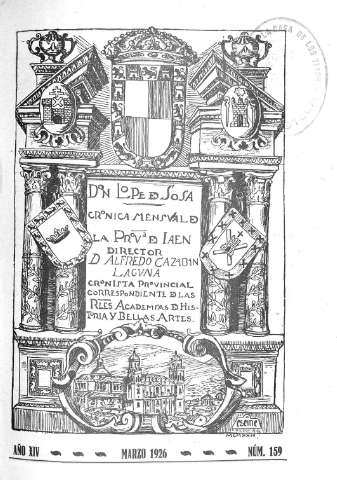 DON LOPE DE SOSA
CRONICA MENSVAL DE
LA PROVᴬ DE JAEN
DIRECTOR
D ALFREDO CAZABAN
LAGUNA
CRONISTA PROVINCIAL
CORRESPONDIENTE DE LAS
RLES ACADEMIAS D HIS
TORIA Y BELLAS ARTES.
MCMXXII
AÑO XIV MARZO 1926 NÚM. 159